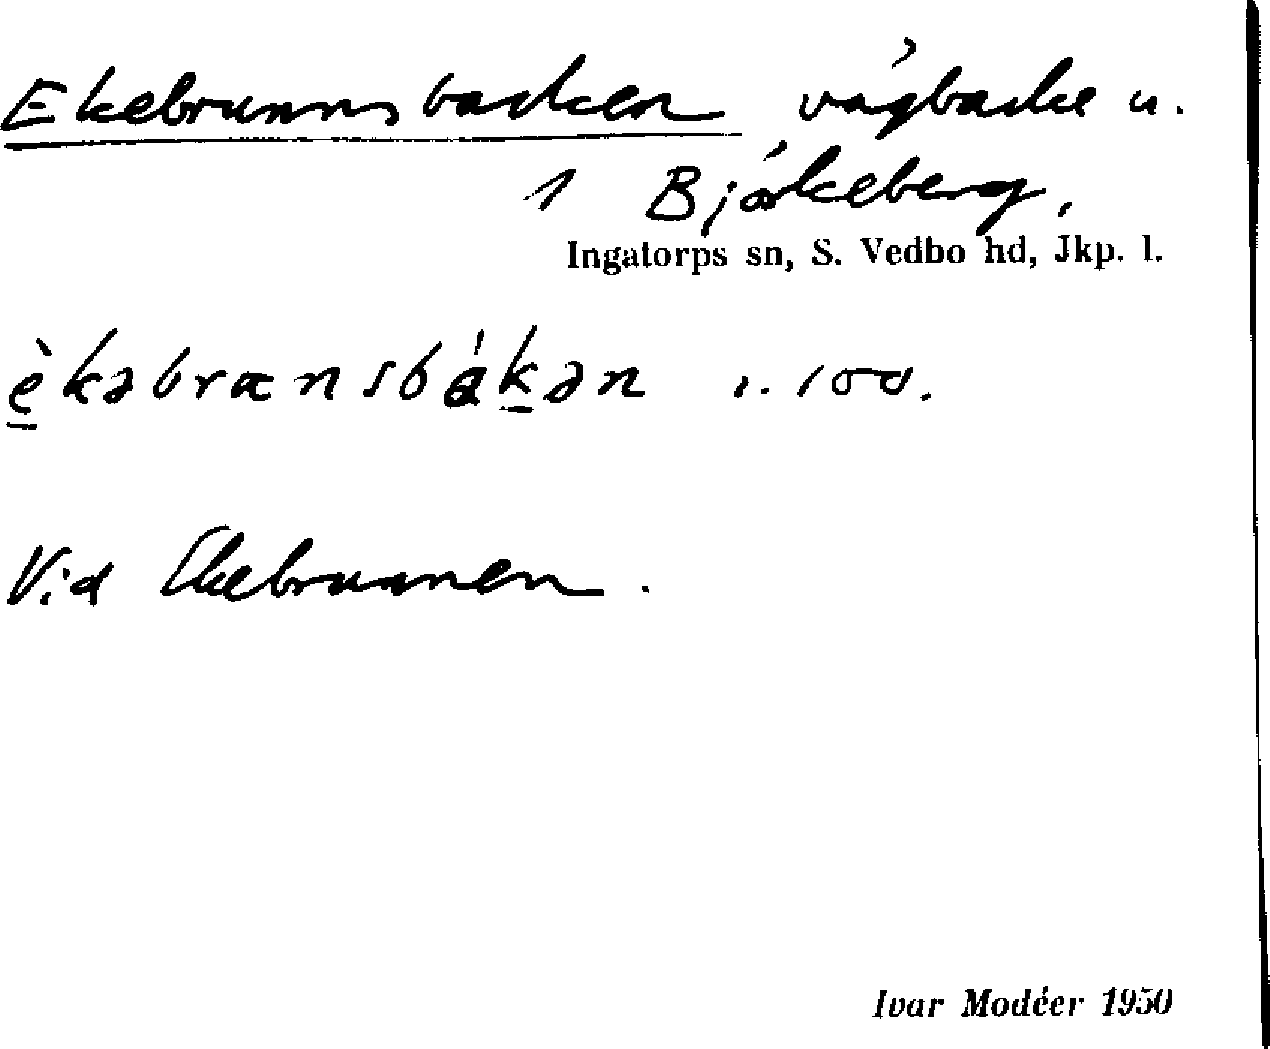 Ekebrunnsbacken vägbacke u.
1 Björkeberg,
Ingatorps sn, S. Vedbo hd, Jkp. l.
èkəbrœnsbákən 1. 100.
Vid Ekebrunnen.
Ivar Modéer 1950